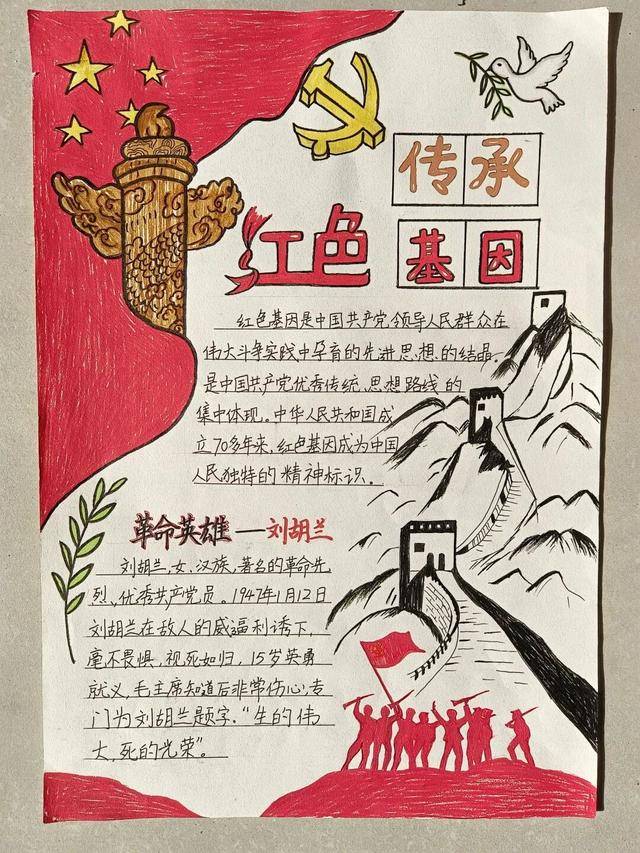 传承
红色 基因
红色基因是中国共产党领导人民群众在
伟大斗争实践中孕育的先进思想的结晶。
是中国共产党优秀传统、思想路线的
集中体现。中华人民共和国成
立70多年来,红色基因成为中国
人民独特的精神标识。
革命英雄——刘胡兰
刘胡兰,女,汉族,著名的革命先
烈、优秀共产党员。1947年1月12日
刘胡兰在敌人的威逼利诱下,
毫不畏惧,视死如归,15岁英勇
就义,毛主席知道后非常伤心,专
门为刘胡兰题字,“生的伟
大,死的光荣”。